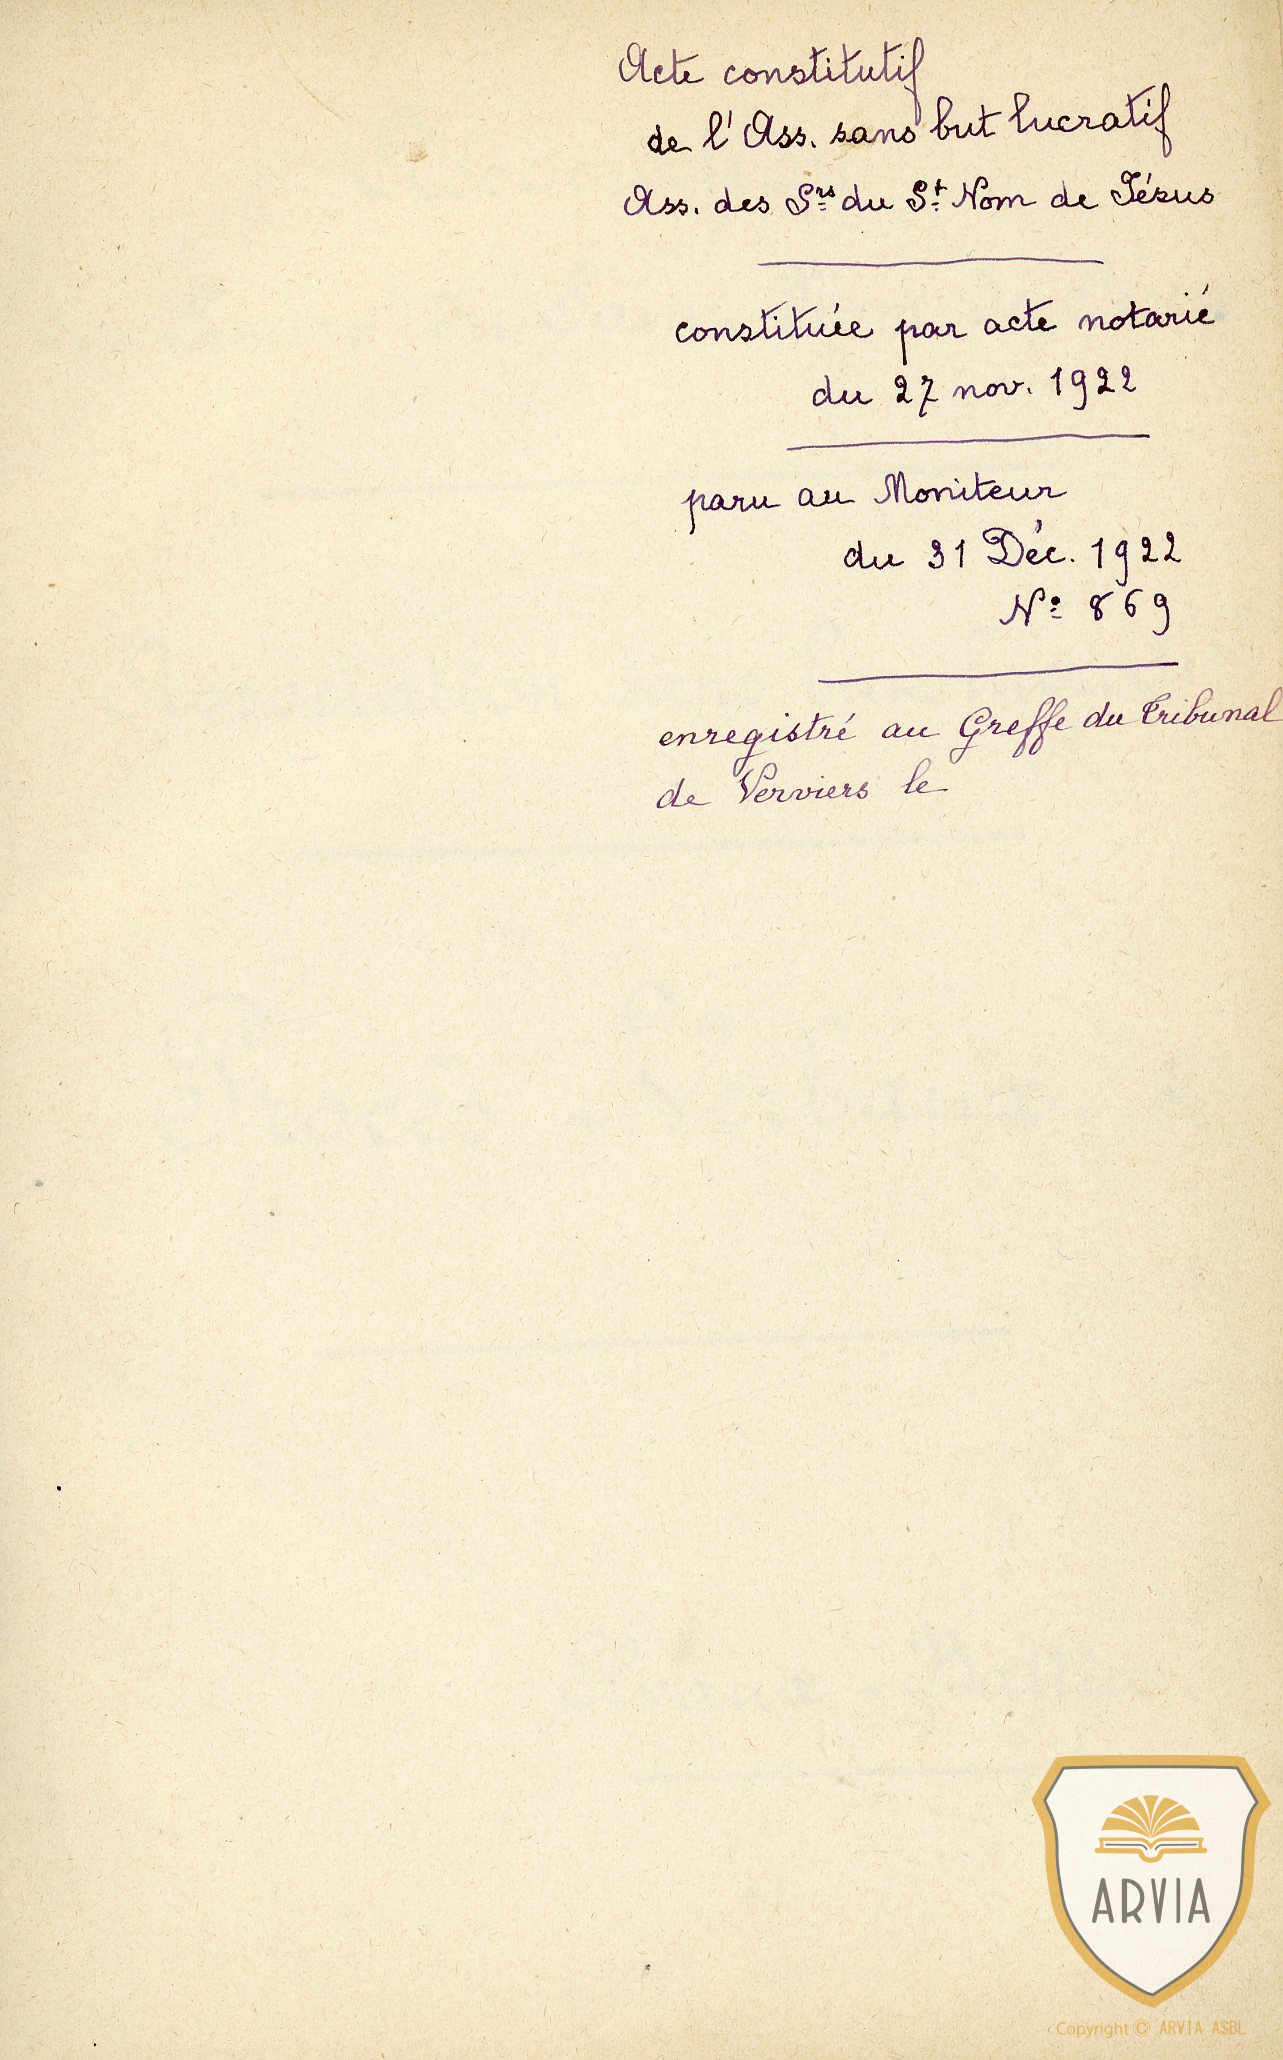 Acte constitutif
de l'Ass. sans but lucratif
Ass. des Srs du St Nom de Jésus
constituée par acte notarié
du 27 nov. 1922
paru au Moniteur
du 31 Déc. 1922
No 869
enregistré au Greffe du Tribunal
de Verviers le
ARVIA
Copyright © ARVIA ASBL